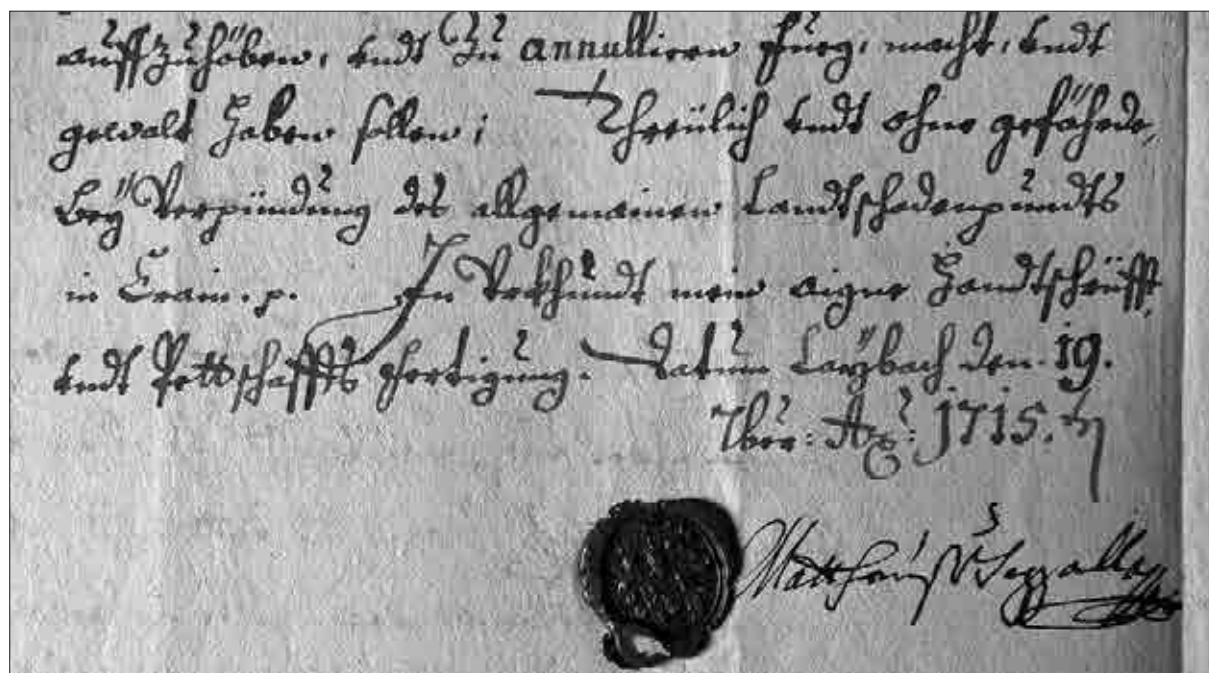 auffzuhöben, undt Zu annulliren fueg, macht, undt
gewalt haben sollen; Threülich undt ohne gefährde,
beÿ Verpündung des allgemainen Landtschadenpundts
in Crain. p. In Vrkhundt mein aigne Handtschrüfft,
undt Pettschaffts fertigung. Datum Laÿbach den 19.
7ber: Aõ: 1715.
Matthæus